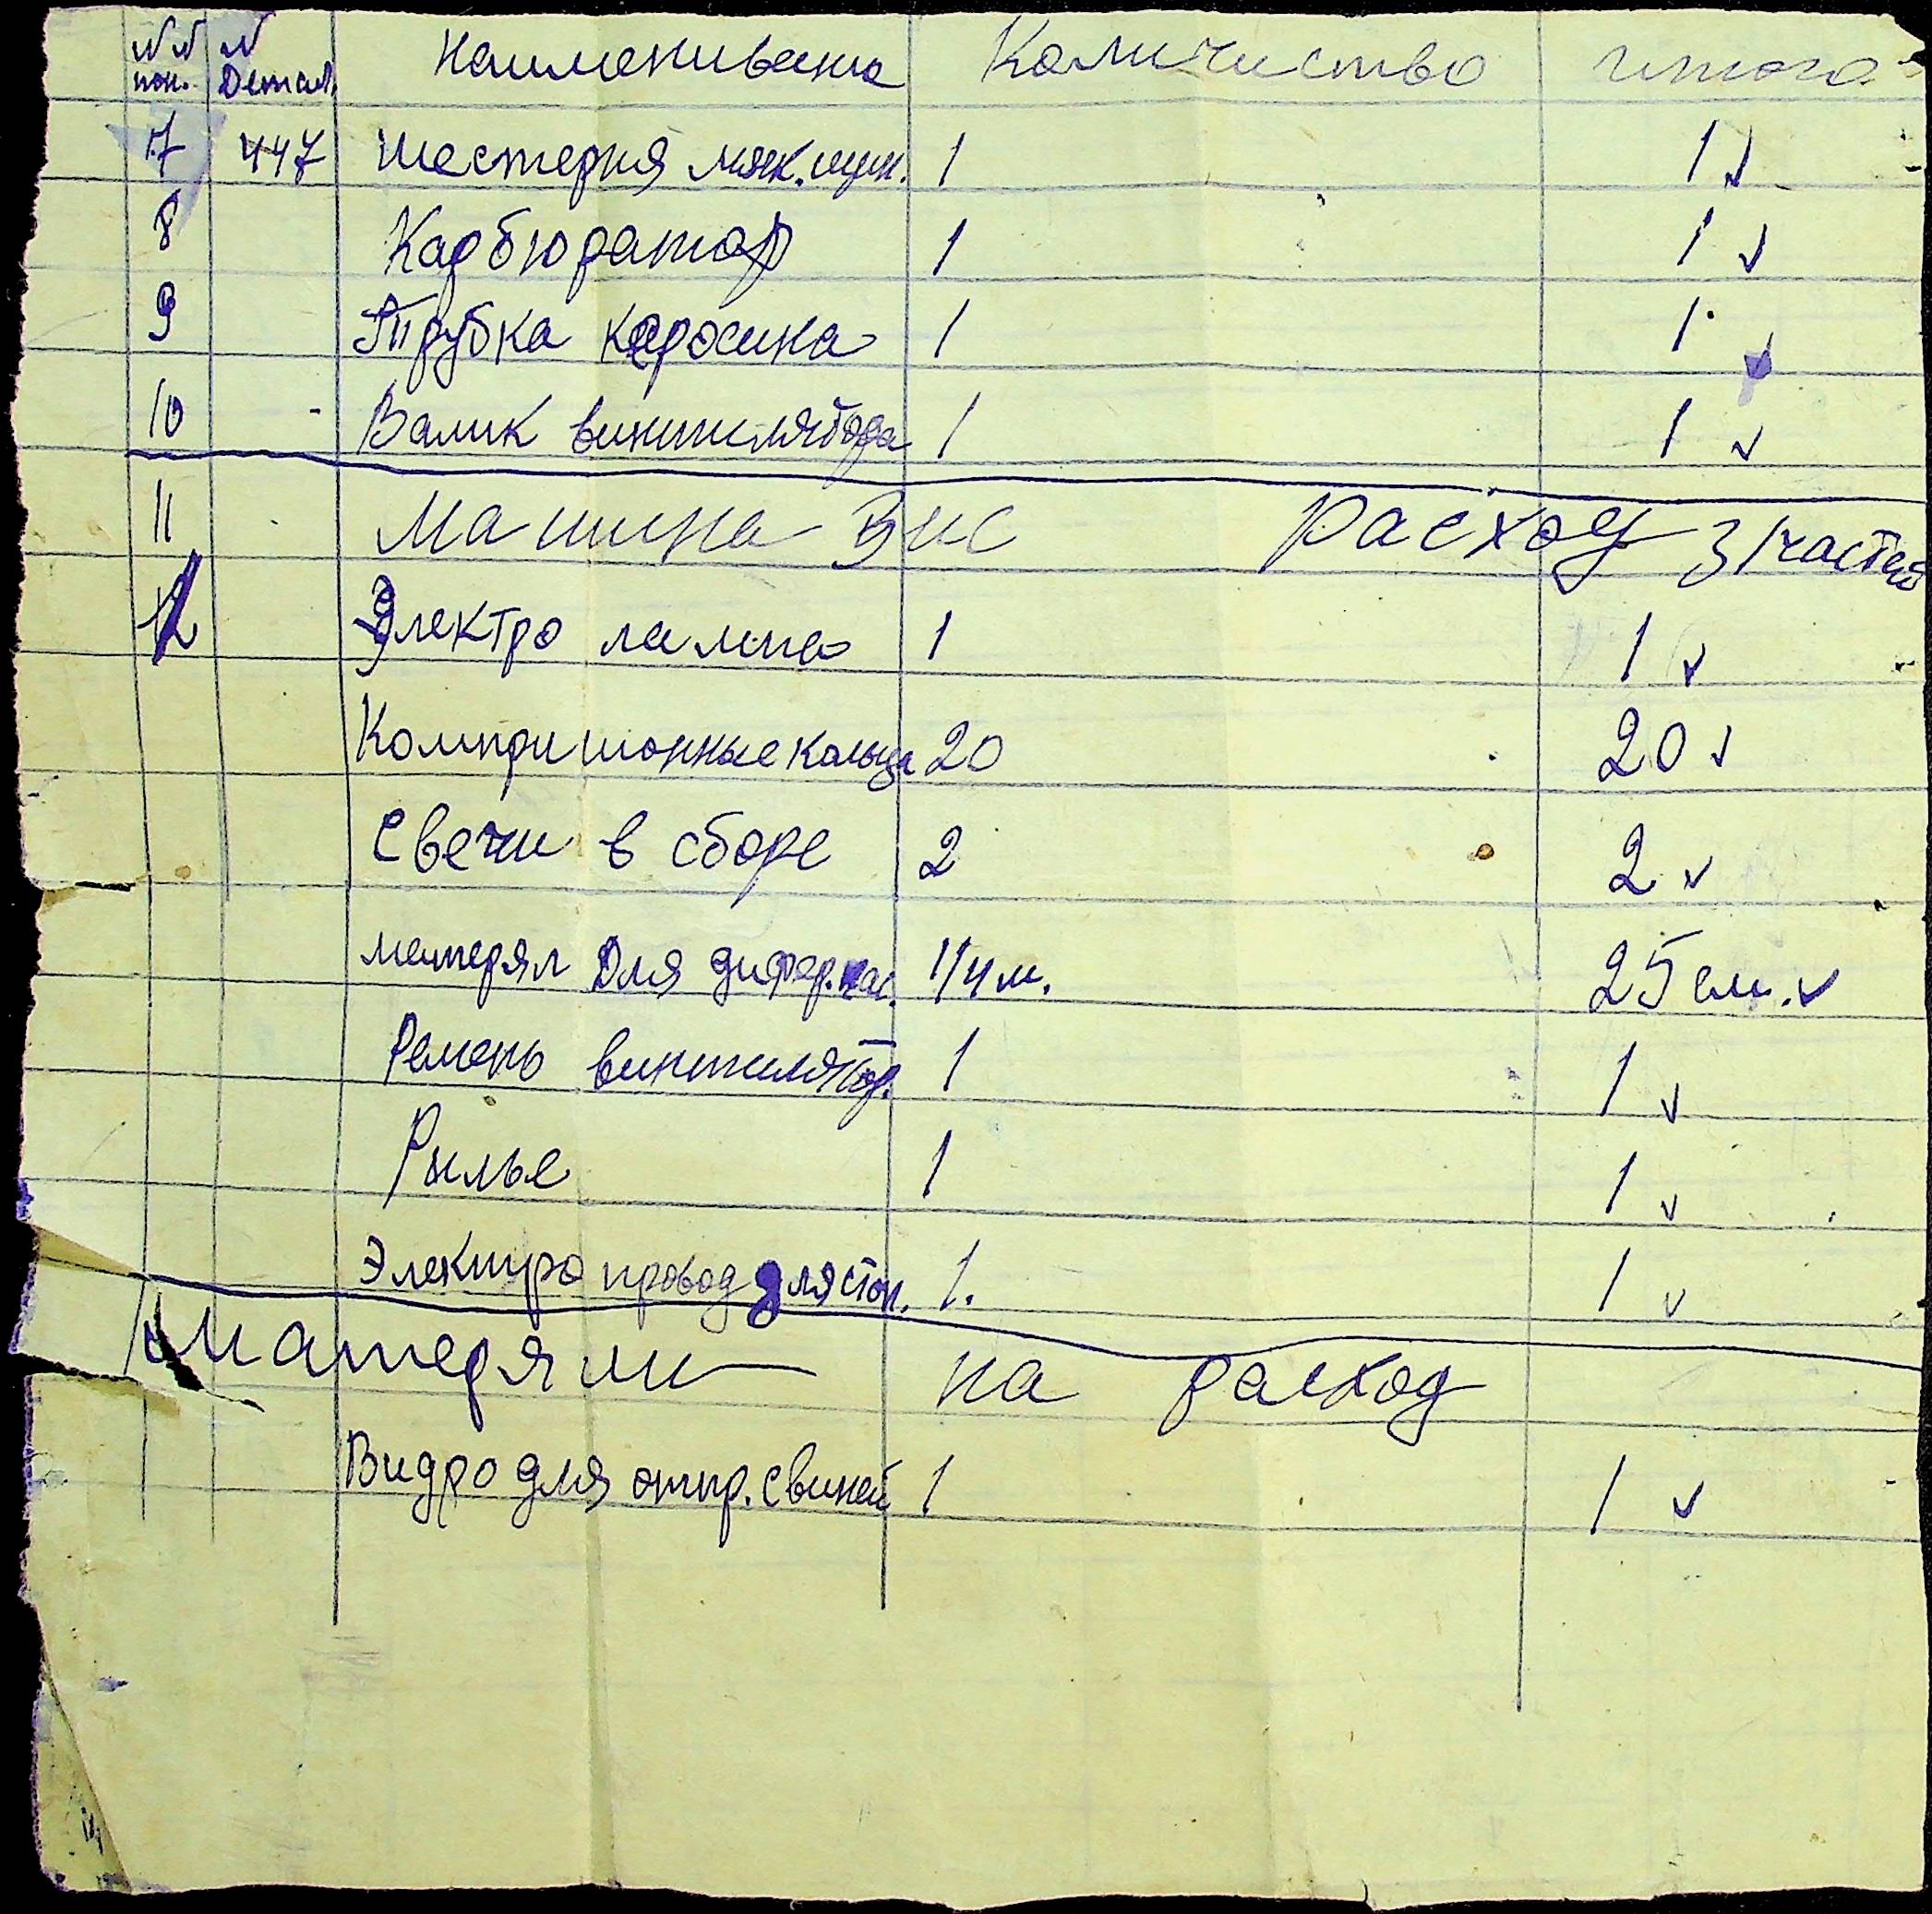 №№ N Наименивание Количиство итого
пон. Детал.
17 447 шестерня 1 1 ✓
8 Карбюратор 1 1 ✓
9 Трубка керосина 1 1 ✓
10 Валик винтилятора 1 1 ✓
11 Машина Зис Расход з/частей
12 Электро лампа 1 1 ✓
Компришионные кольца 20 20 ✓
Свечи в сборе 2 2 ✓
матерял Для дифер. 1/4 м. 25 см. ✓
Ремень винтилятор. 1 1 ✓
Рылье 1 1 ✓
Электро провод для стоп. 1. 1 ✓
матерялы на расход
Видро для отпр. свиней 1 1 ✓